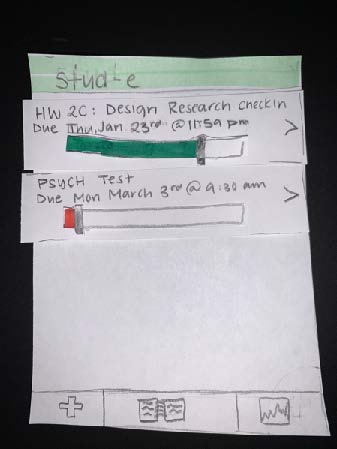 stud-e
HW 2C: Design Research Checkin
Due Thu, Jan 23rd @ 11:59 pm
>
PSYCH Test
Due Mon March 3rd @ 9:30 am
>